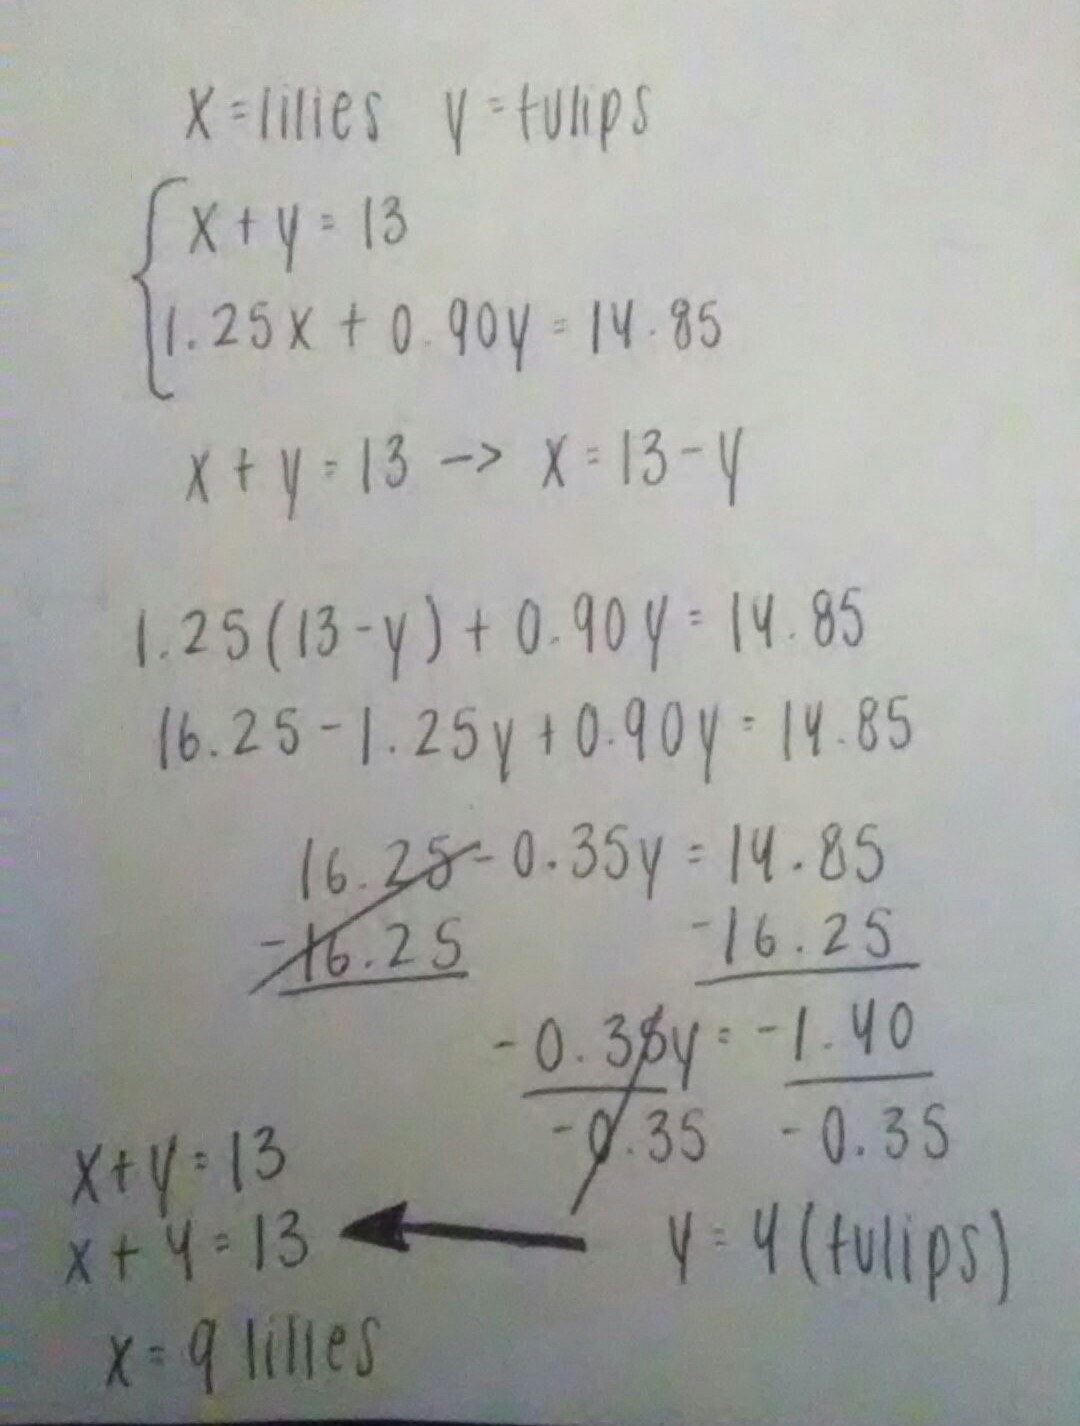 x = lilies y = tulips
x + y = 13
1.25x + 0.90y = 14.85
x + y = 13 -> x = 13 - y
1.25(13 - y) + 0.90y = 14.85
16.25 - 1.25y + 0.90y = 14.85
16.25 - 0.35y = 14.85
-16.25 -16.25
-0.35y = -1.40
-0.35 -0.35
y = 4 (tulips)
x + y = 13
x + 4 = 13
x = 9 lilies